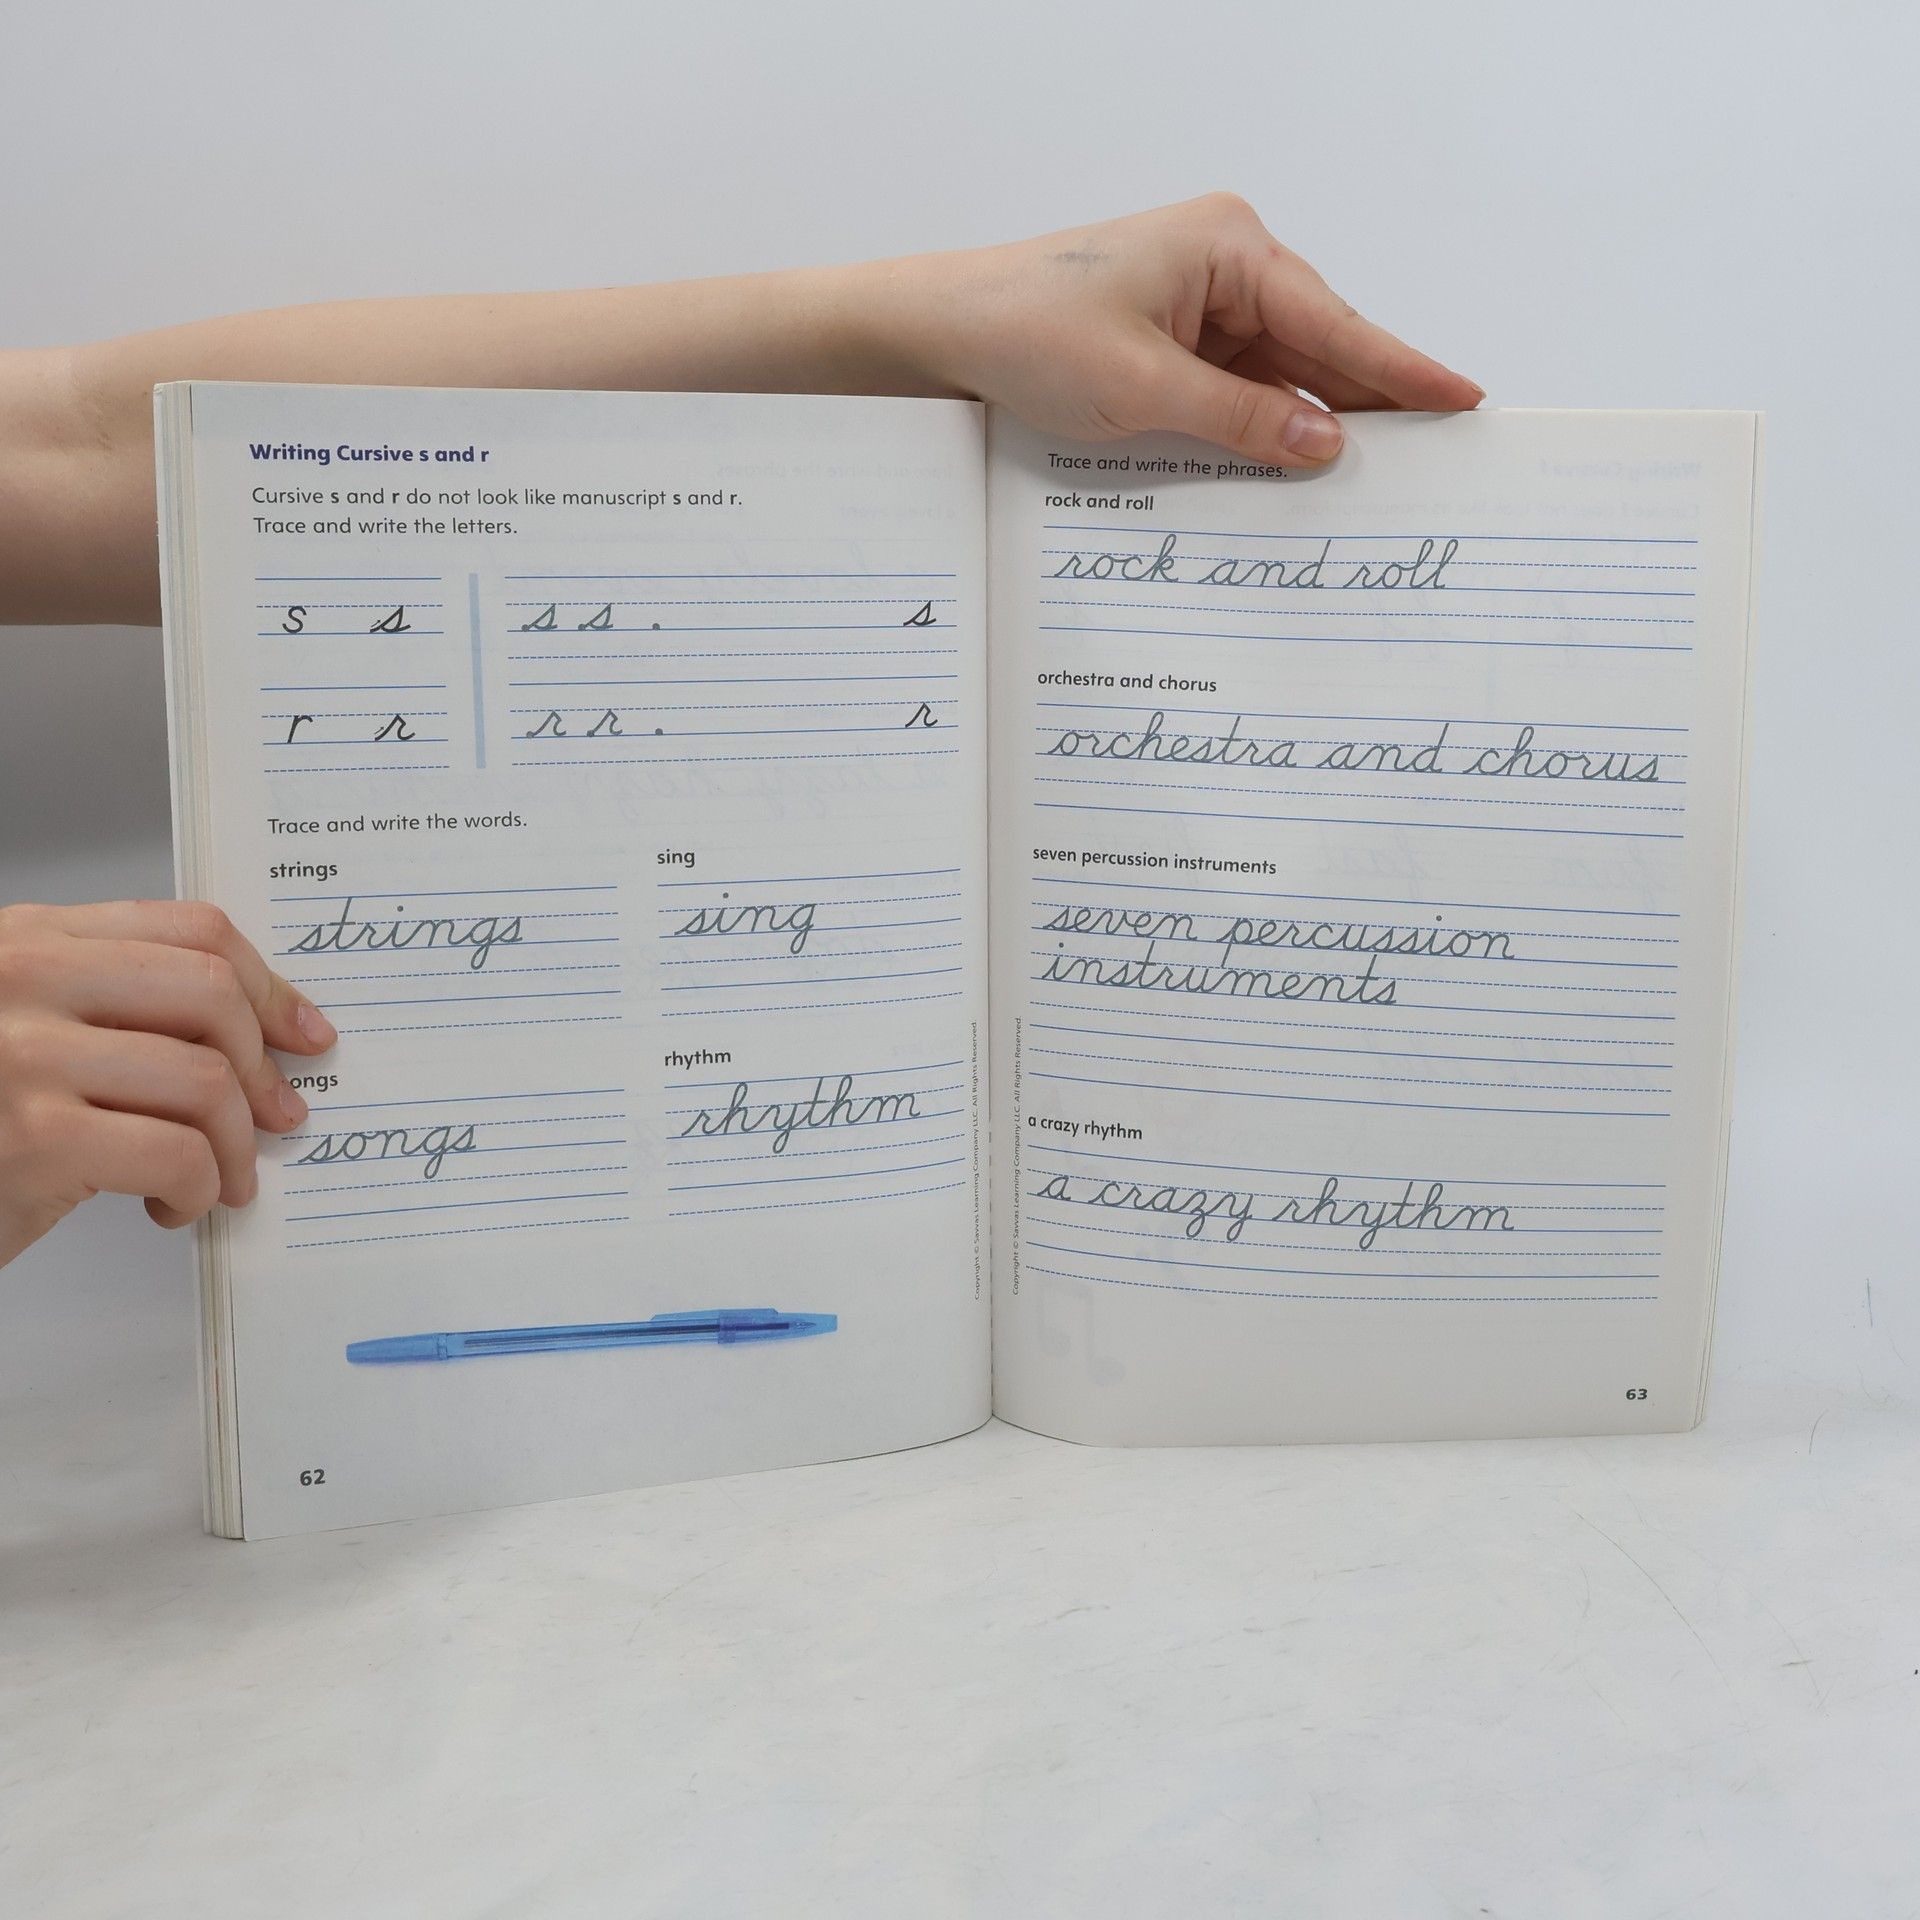 Writing Cursive s and r
Cursive s and r do not look like manuscript s and r.
Trace and write the letters.
s s s s . s
r r r r . r
Trace and write the words.
strings
strings
sing
sing
ongs
songs
rhythm
rhythm
Copyright © Savvas Learning Company LLC. All Rights Reserved.
62
Trace and write the phrases.
rock and roll
rock and roll
orchestra and chorus
orchestra and chorus
seven percussion instruments
seven percussion
instruments
a crazy rhythm
a crazy rhythm
Copyright © Savvas Learning Company LLC. All Rights Reserved.
63